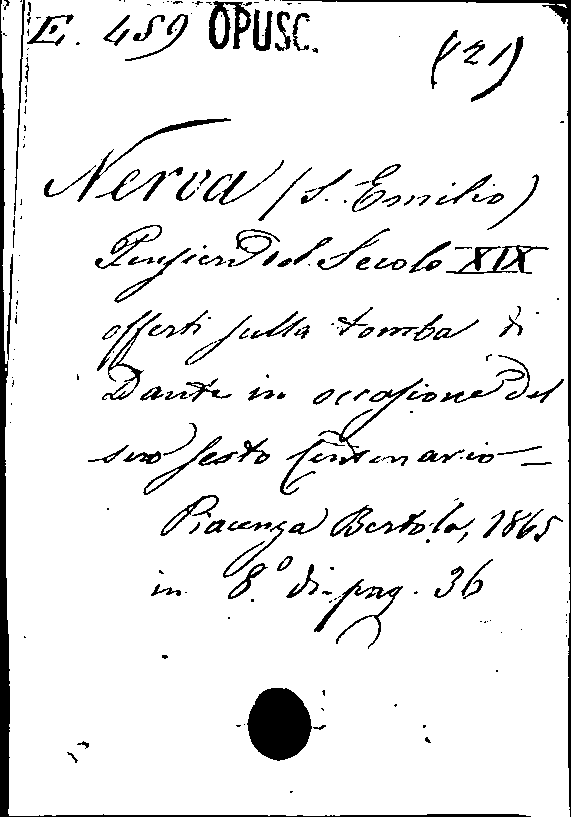 E. 459 OPUSC. (21)
Nerva (S. Emilio)
Pensieri del Secolo XIX
offerti sulla tomba di
Dante in occasione del
suo sesto Centenario –
Piacenza Bertola, 1865
in 8.º di pag. 36